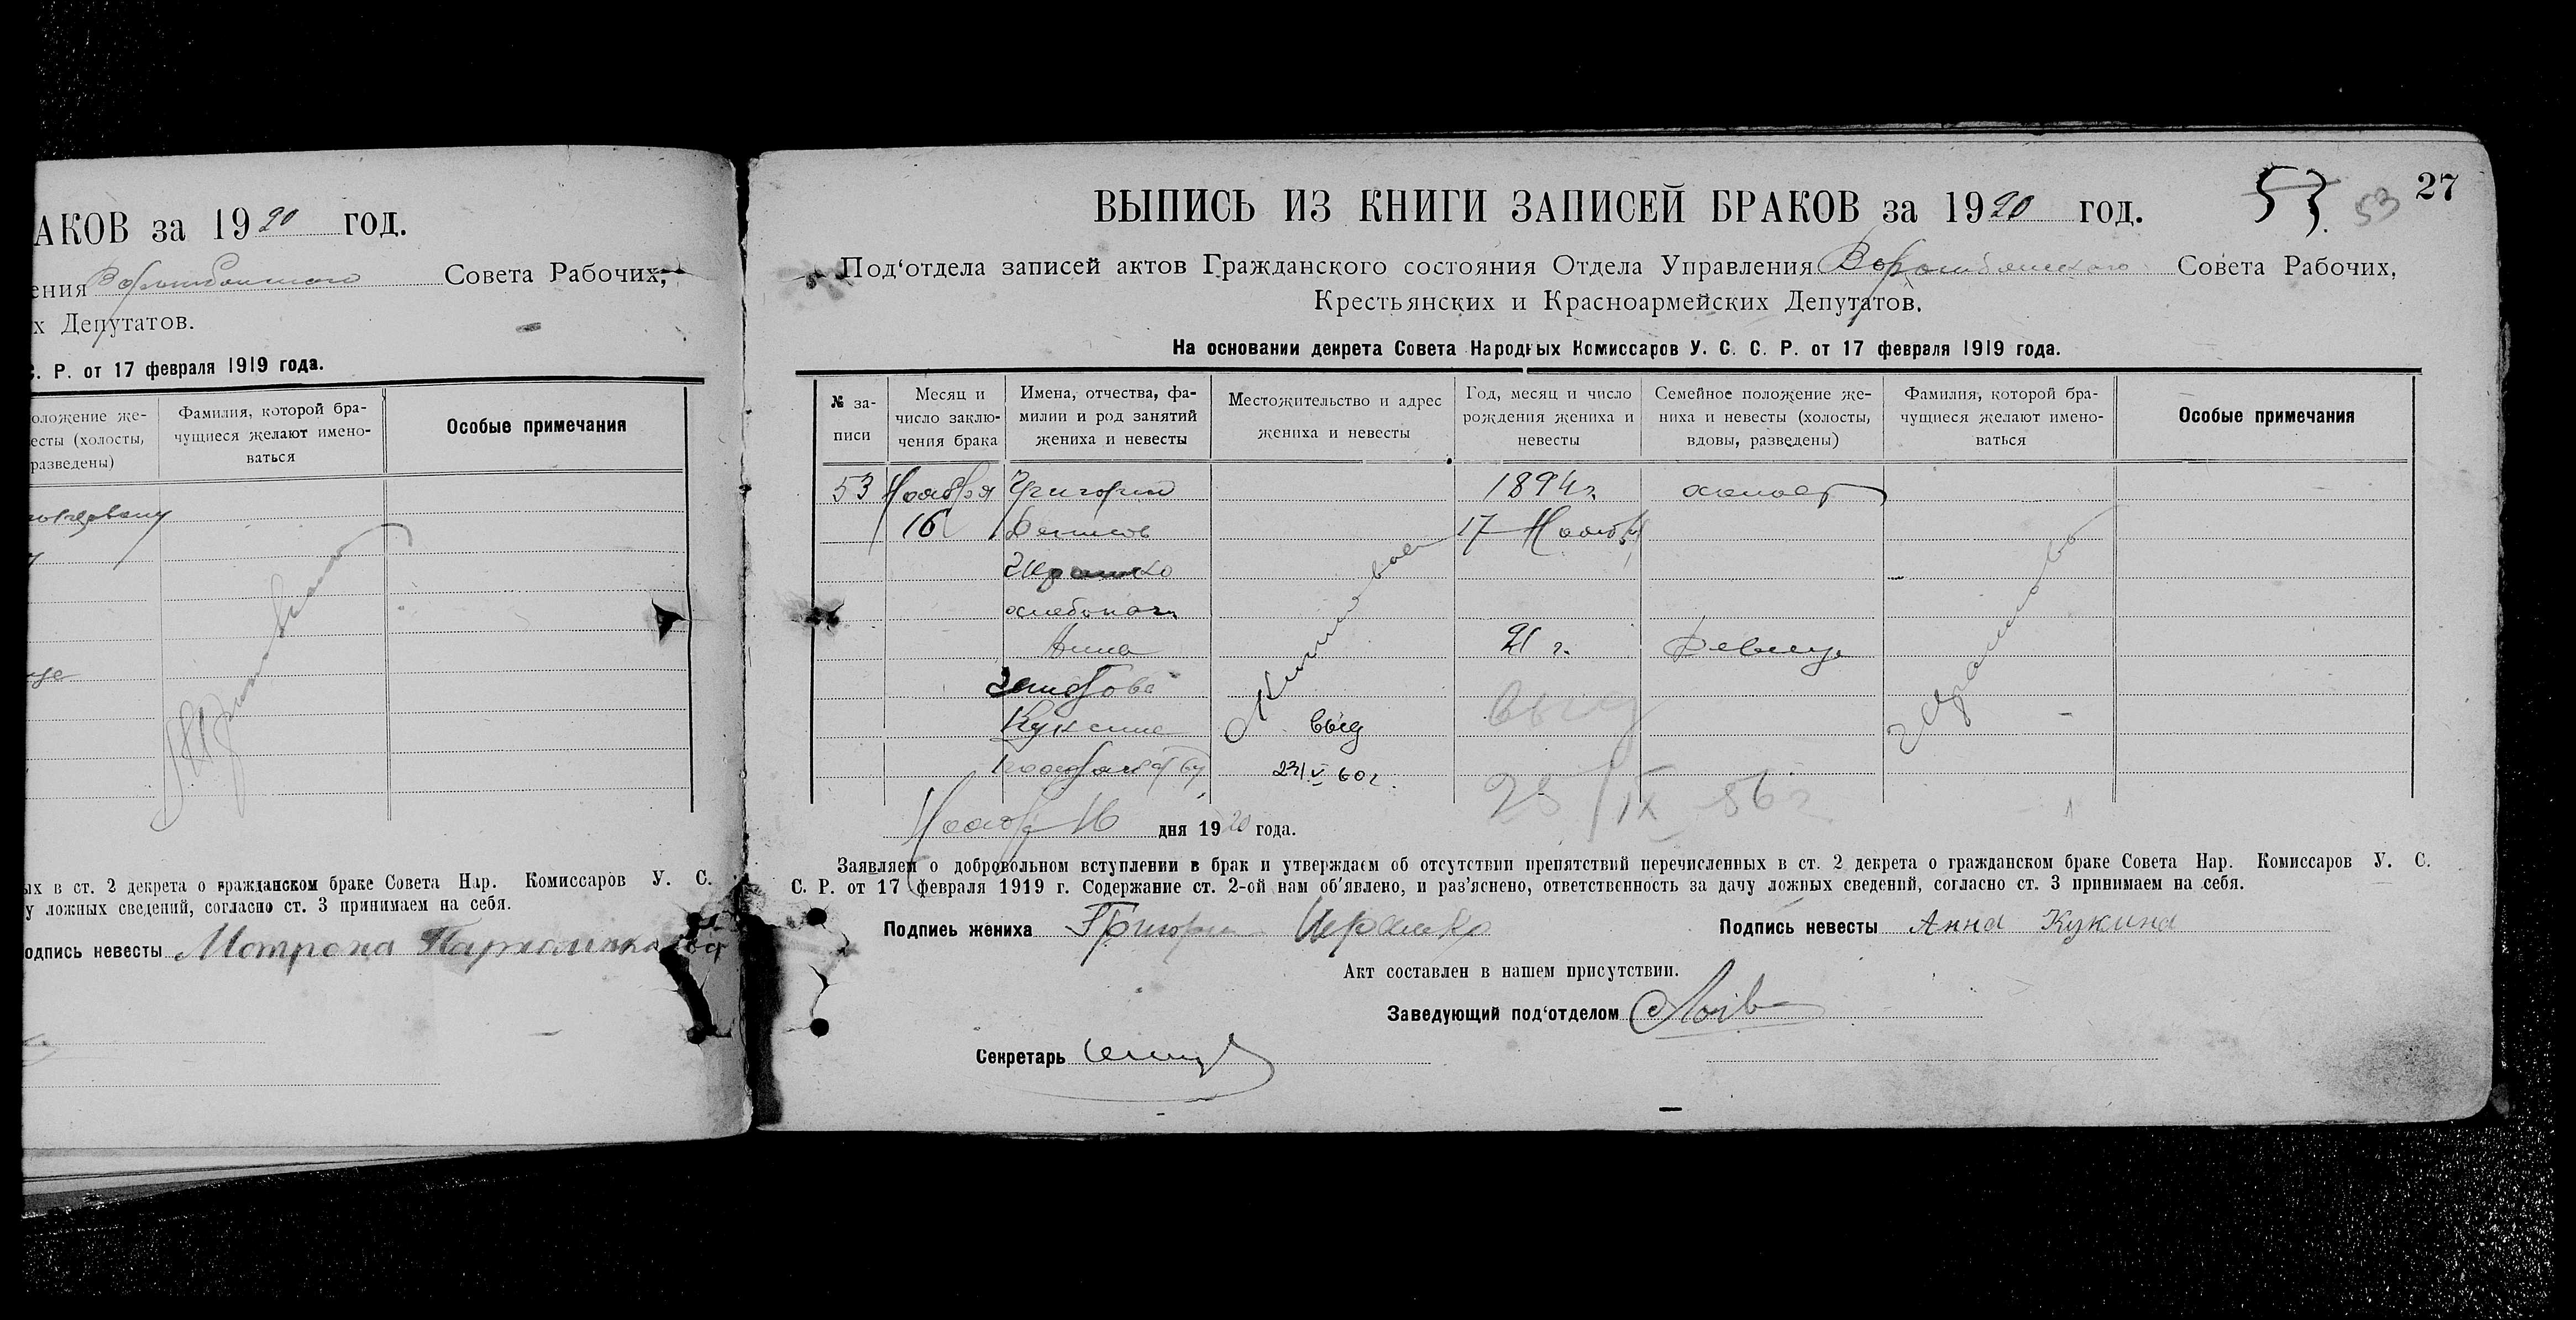 АКОВ за 1920 год.
ения Совета Рабочих,
х Депутатов.
С. Р. от 17 февраля 1919 года.
оложение же-
есты (холосты,
разведены)
Фамилия, которой бра-
чущиеся желают имено-
ваться
Особые примечания
ых в ст. 2 декрета о гражданском браке Совета Нар. Комиссаров У. С.
у ложных сведений, согласно ст. 3 принимаем на себя.
одпись невесты Мотрона
53 53 27
ВЫПИСЬ ИЗ КНИГИ ЗАПИСЕЙ БРАКОВ за 1920 год.
Под‘отдела записей актов Гражданского состояния Отдела Управления Совета Рабочих,
Крестьянских и Красноармейских Депутатов.
На основании декрета Совета Народных Комиссаров У. С. С. Р. от 17 февраля 1919 года.
№ за-
писи
Месяц и
число заклю-
чения брака
Имена, отчества, фа-
милии и род занятий
жениха и невесты
Местожительство и адрес
жениха и невесты
Год, месяц и число
рождения жениха и
невесты
Семейное положение же-
ниха и невесты (холосты,
вдовы, разведены)
Фамилия, которой бра-
чущиеся желают имено-
ваться
Особые примечания
53 Ноября Григорий 1894 г. холост
16 Денисов 17 Ноября
хлебопаш.
Анна 21 г. Девица
Кукина выд выд
23/V 60 г.
25/IX 56 г.
Ноября 16 дня 1920 года.
Заявляем о добровольном вступлении в брак и утверждаем об отсутствии препятствий перечисленных в ст. 2 декрета о гражданском браке Совета Нар. Комиссаров У. С.
С. Р. от 17 февраля 1919 г. Содержание ст. 2-ой нам об‘явлено, и раз‘яснено, ответственность за дачу ложных сведений, согласно ст. 3 принимаем на себя.
Подпись жениха Григорий
Подпись невесты Анна Кукина
Акт составлен в нашем присутствии.
Заведующий под‘отделом
Секретарь